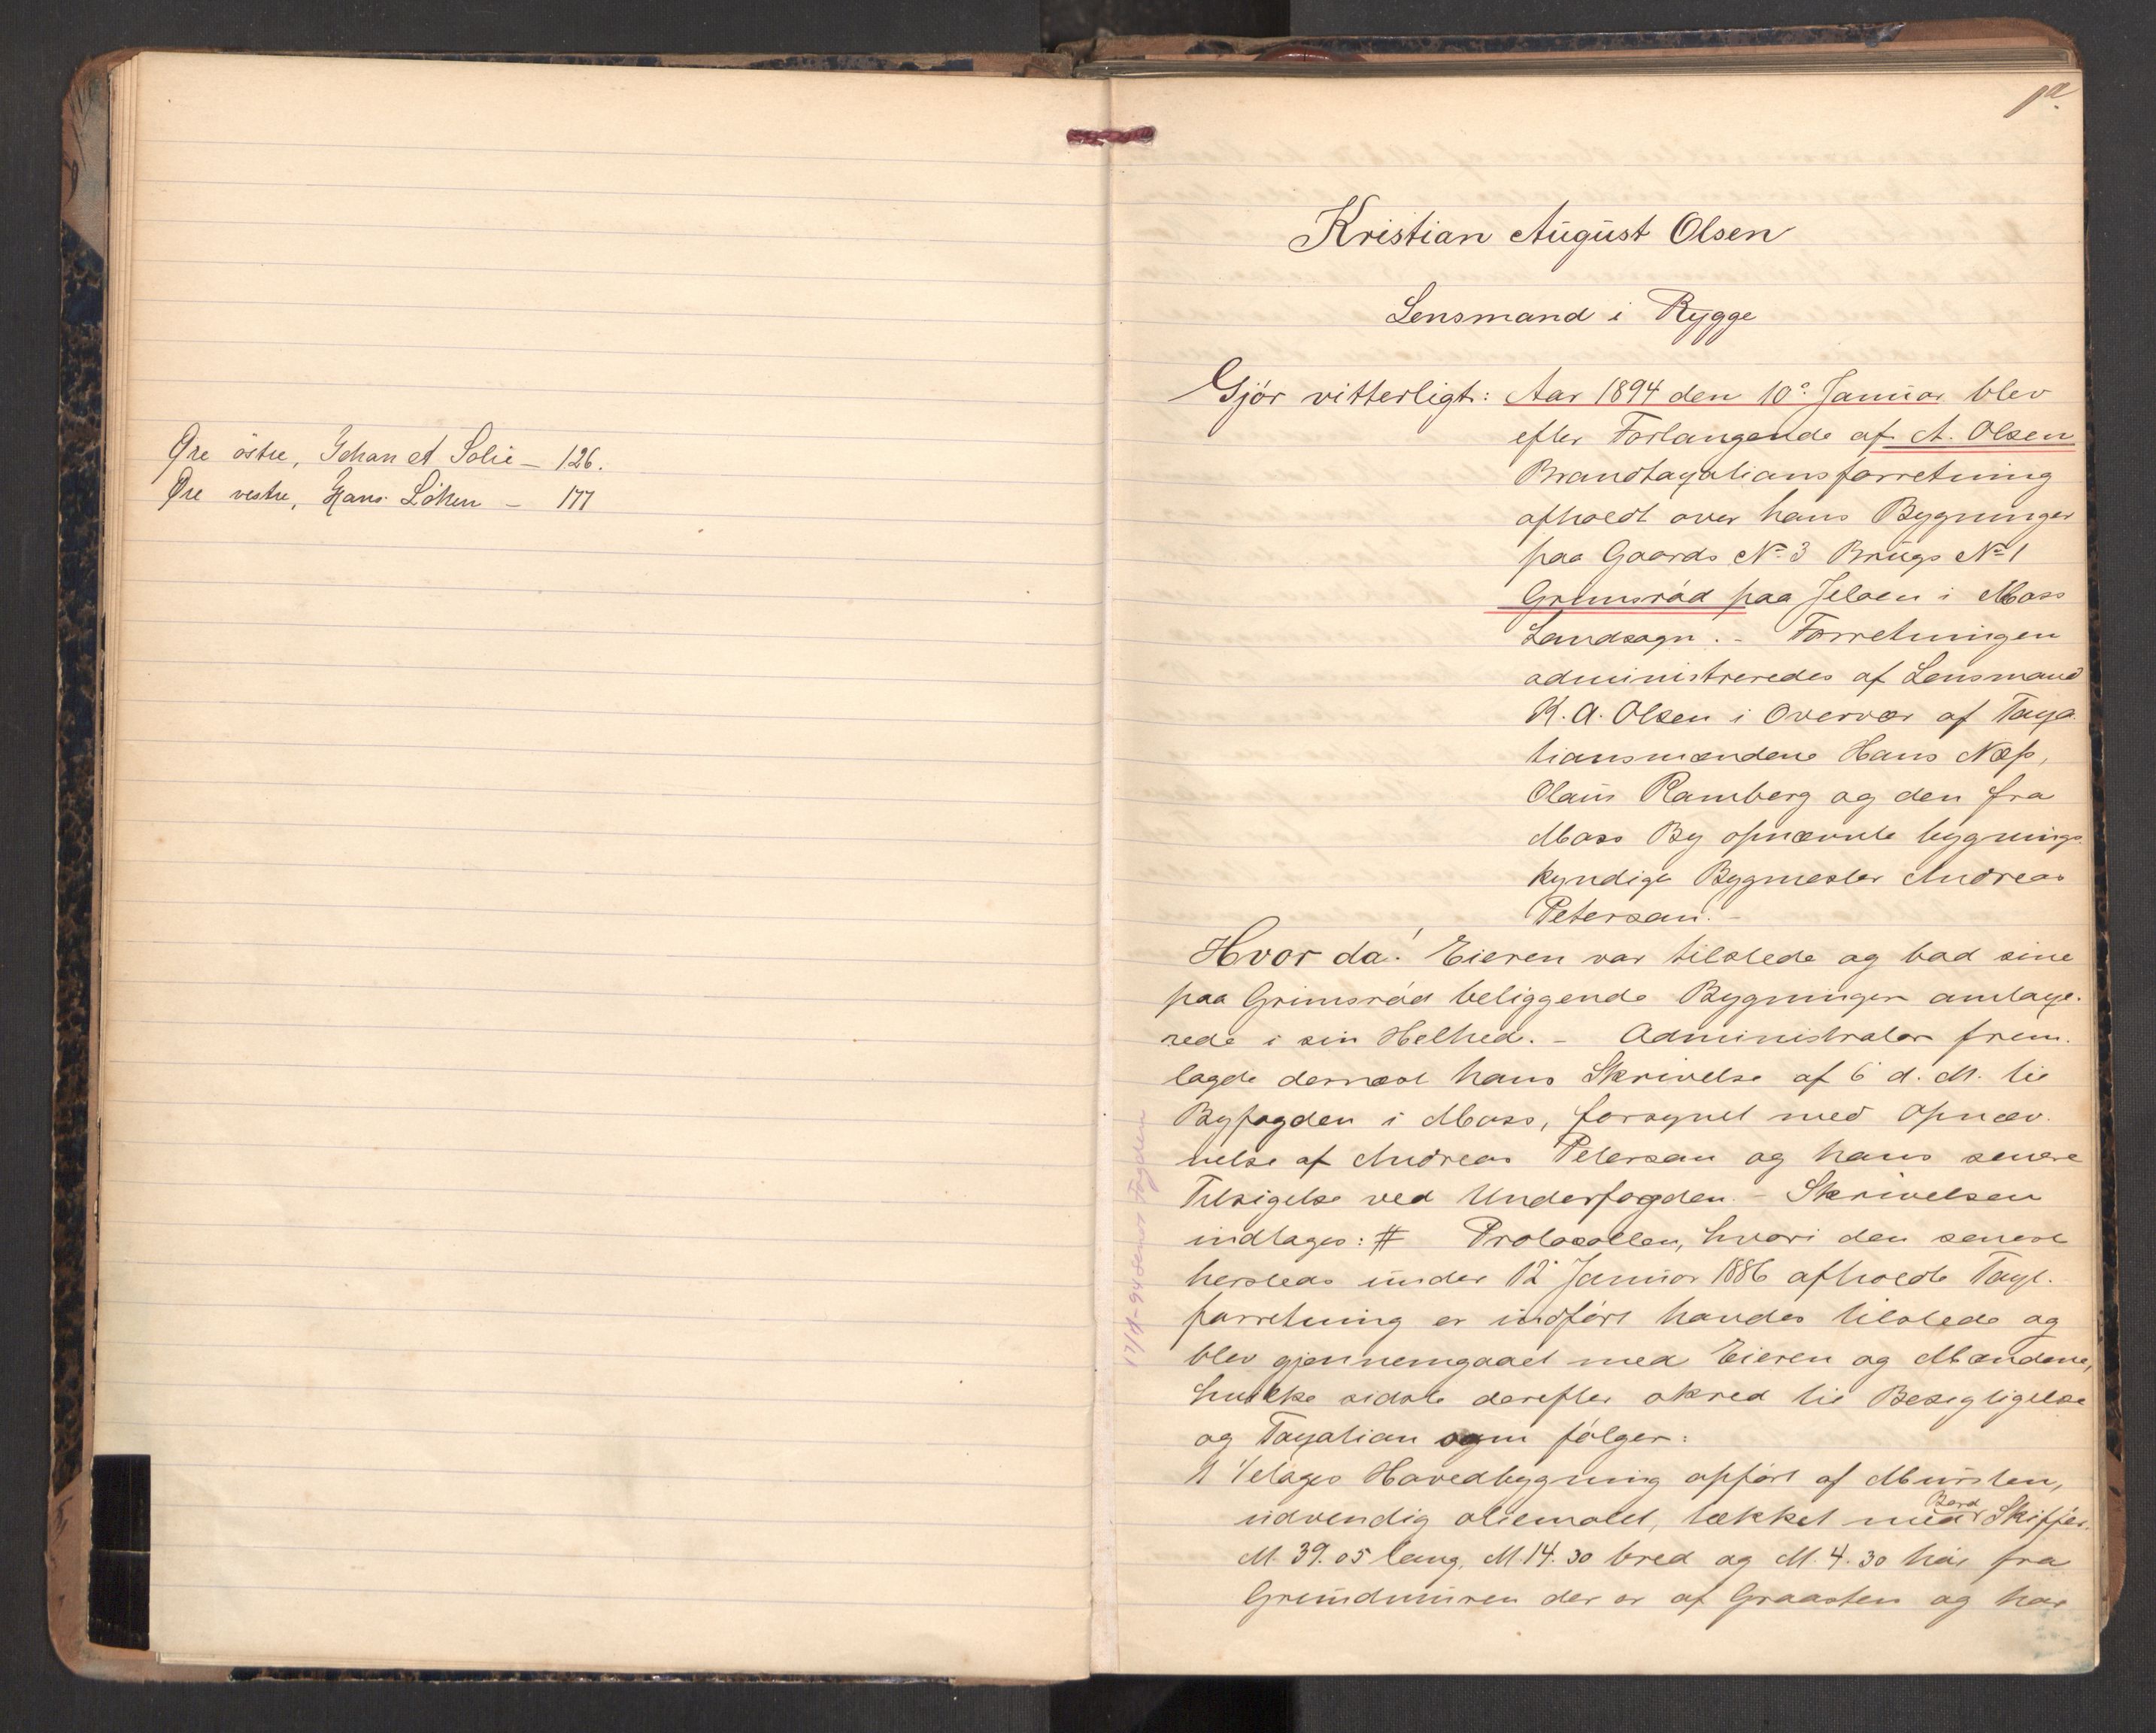 Øre östre, Johan A Solie — 126.
Øre vestre, Hans Löken — 177
1a.
Kristian August Olsen
Lensmand i Rygge
Gjör vitterligt: Aar 1894 den 10° Januar blev
efter Forlangende af A. Olsen
Brandtaxationsforretning
afholdt over hans Bygninger
paa Gaards No 3 Brugs No 1
Grimsröd paa Jeløen i Moss
Landsogn. — Forretningen
administreredes af Lensmand
K. A. Olsen i Overvær af Taxa
tionsmændene Hans Næss,
Olaus Ramberg og den fra
Moss By opnævnte bygnings
kyndige Bygmester Andreas
Petersen. —
Hvor da! Eieren var tilstede og bad sine
paa Grimsröd beliggende Bygninger omtaxe-
rede i sin Helhed. — Administrator frem-
lagde dernæst hans Skrivelse af 6' d. M. til
Byfogden i Moss, forsynet med Opnæv-
nelse af Andreas Petersen og hans senere
Tilsigelse ved Underfogden. — Skrivelsen
indtages: # Protocollen, hvori den senest
hersteds under 12' Januar 1886 afholdte Taxt-
forretning er indfört havdes tilstede og
blev gjennemgaaet med Eieren og Mændene,
hvilke sidste derefter skred til Besigtigelse
og Taxation som fölger:
1 1/etages Hovedbygning opfört af Mursten,
udvendig oliemalet, tækket med Bord Skiffer,
M. 39.05 lang, M. 14.30 bred og M. 4.30 höi fra
Grundmuren der er af Graasten og har
17/4-94 sendt Fogden